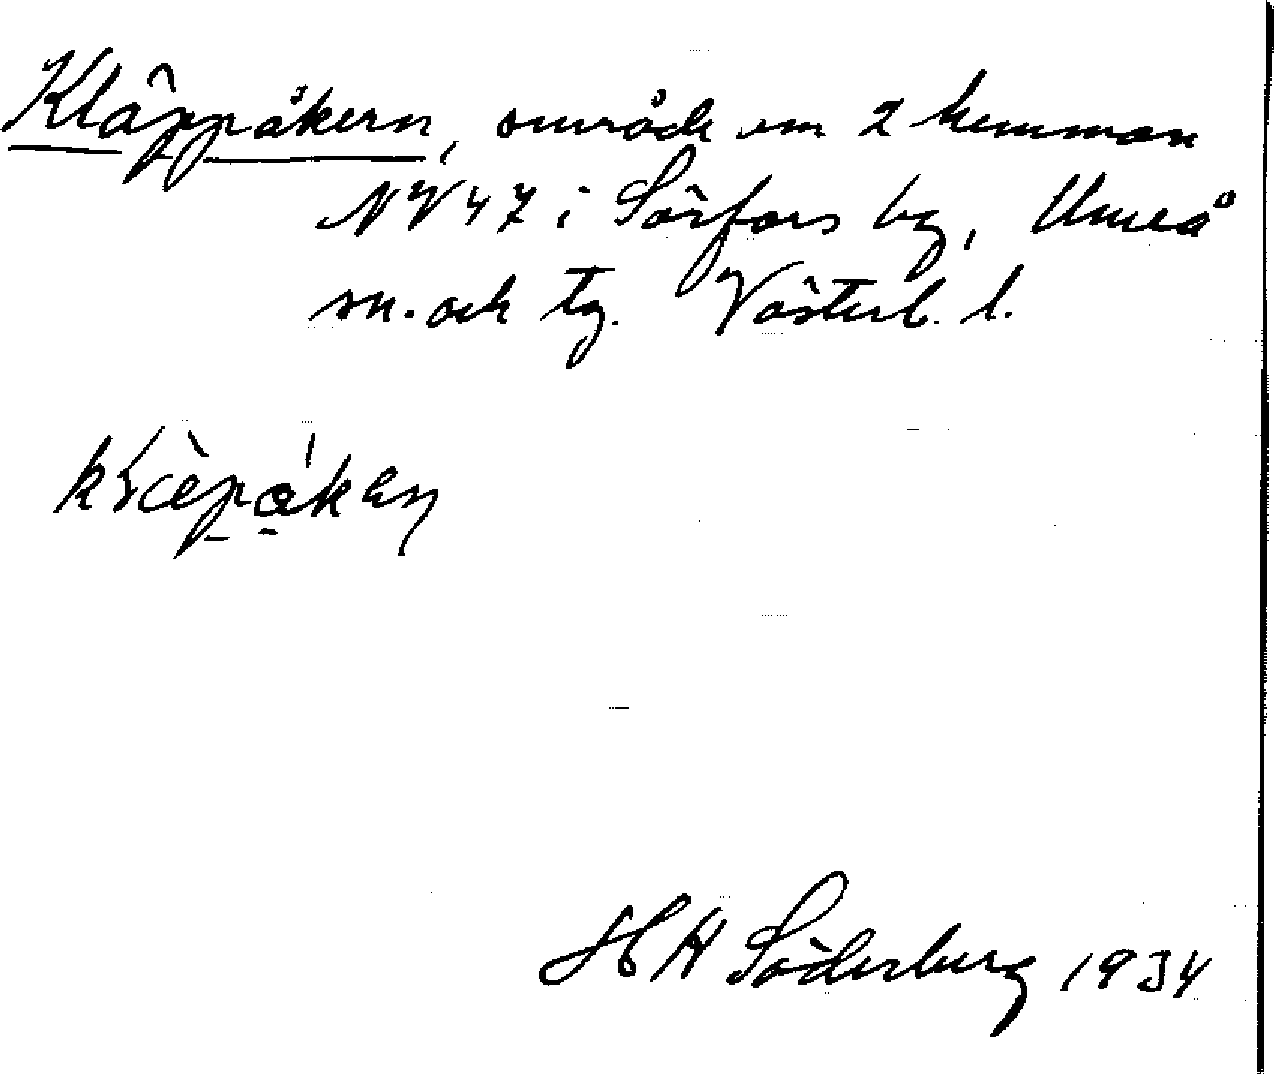 Kläppåkern, område om 2 hemman
NV 47 i Sörfors by, Umeå
sn. och tg. Västerb. l.
H H Söderberg 1934